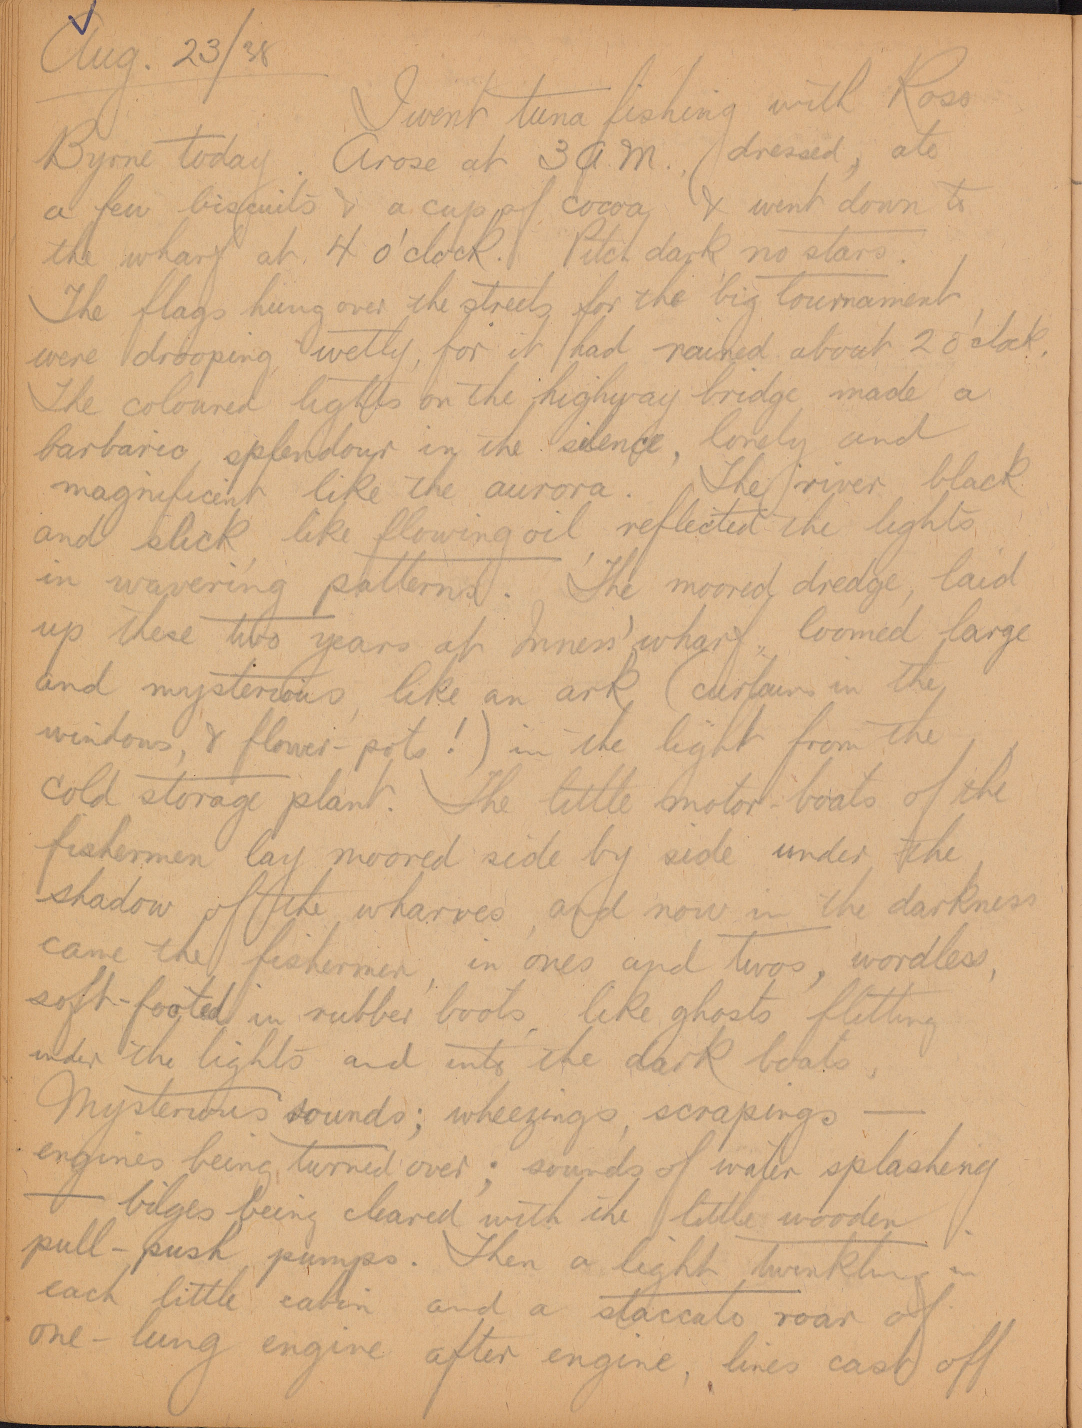 Aug. 23/38
I went tuna fishing with Ross
Byrne today. Arose at 3 A.M., dressed, ate
a few biscuits & a cup of cocoa & went down to
the wharf at 4 o'clock. Pitch dark, no stars.
The flags hung over the streets for the big tournament,
were drooping wetly, for it had rained about 2 o'clock.
The coloured lights on the highway bridge made a
barbaric splendour in the silence, lonely and
magnificent like the aurora. The river black
and slick, like flowing oil, reflected the lights
in wavering patterns. The moored dredge, laid
up these two years at Inness' wharf, loomed large
and mysterious, like an ark (curtains in the
windows, & flower-pots!) in the light from the
cold storage plant. The little motor-boats of the
fishermen lay moored side by side under the
shadow of the wharves, and now in the darkness
came the fishermen, in ones and twos, wordless,
soft-footed in rubber boots, like ghosts flitting
under the lights and into the dark boats.
Mysterious sounds; wheezings, scrapings —
engines being turned over; sounds of water splashing
— bilges being cleared with the little wooden
pull-push pumps. Then a light twinkling in
each little cabin and a staccato roar of
one-lung engine after engine, lines cast off